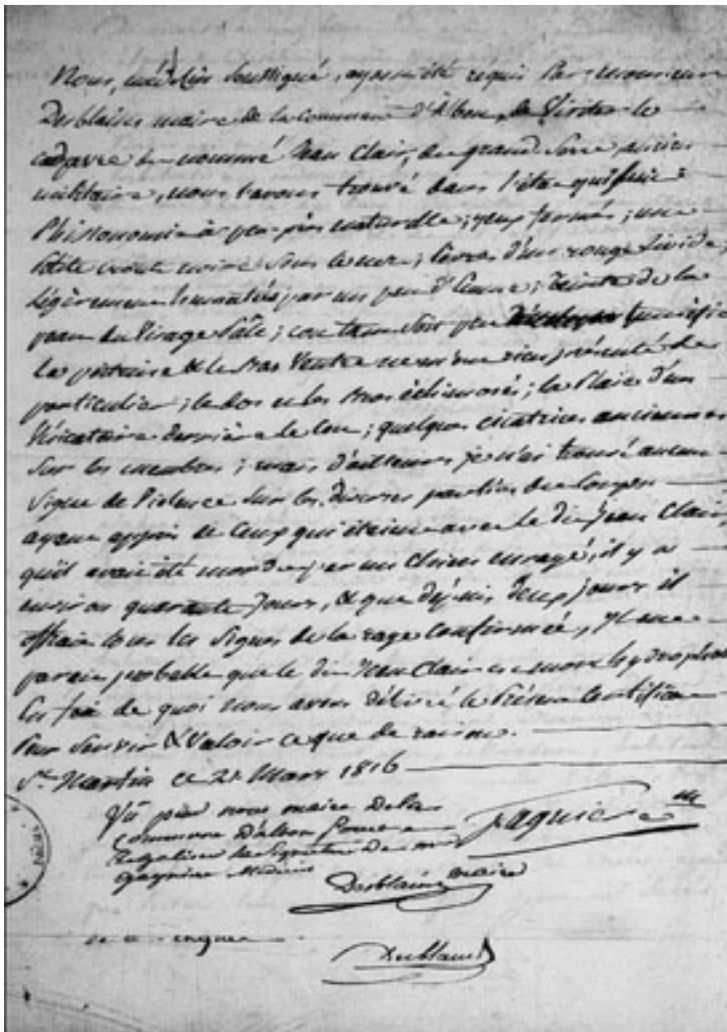 Nous, médecin soussigné, ayant été requis par monsieur
Desblains maire de la commune d'Albon, de visiter le
cadavre du nommé Jean Clair, du grand ancien
militaire, nous l'avons trouvé dans l'état qui suit
Phisionomie à peu-près naturelle; yeux fermés; une
petite croute noire sous le nez; lèvres d'un rouge livide,
légèrement par un peu d'écume; teinte de la
peau du visage sale; cou tant soit peu tuméfié
la poitrine & le bas ventre ne m'ont rien présenté de
particulier; le dos et les bras échimosés; la plaie d'un
vésicatoire derrière le cou; quelques cicatrices anciennes
sur les membres; mais d'ailleurs je n'ai trouvé aucun
signe de violence sur les diverses parties du corps
ayant appris de ceux qui étaient avec le dit Jean Clair
qu'il avait été mordu par un chien enragé, il y a
environ quarante jours, & que depuis deux jours il
offrait tous les signes de la rage confirmée, il me
parait probable que le dit Jean Clair est mort hydrophobe
En foi de quoi nous avons délivré le présent certificat
pour servir & valoir ce que de raison.
St. Martin ce 21 Mars 1816
Vu par nous maire de la
commune d'albon pour
légaliser la signature de mr
médecin
Desblains maire
Desblains